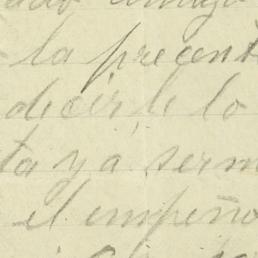 la precent
decirle lo
ta ya serm
el empeño